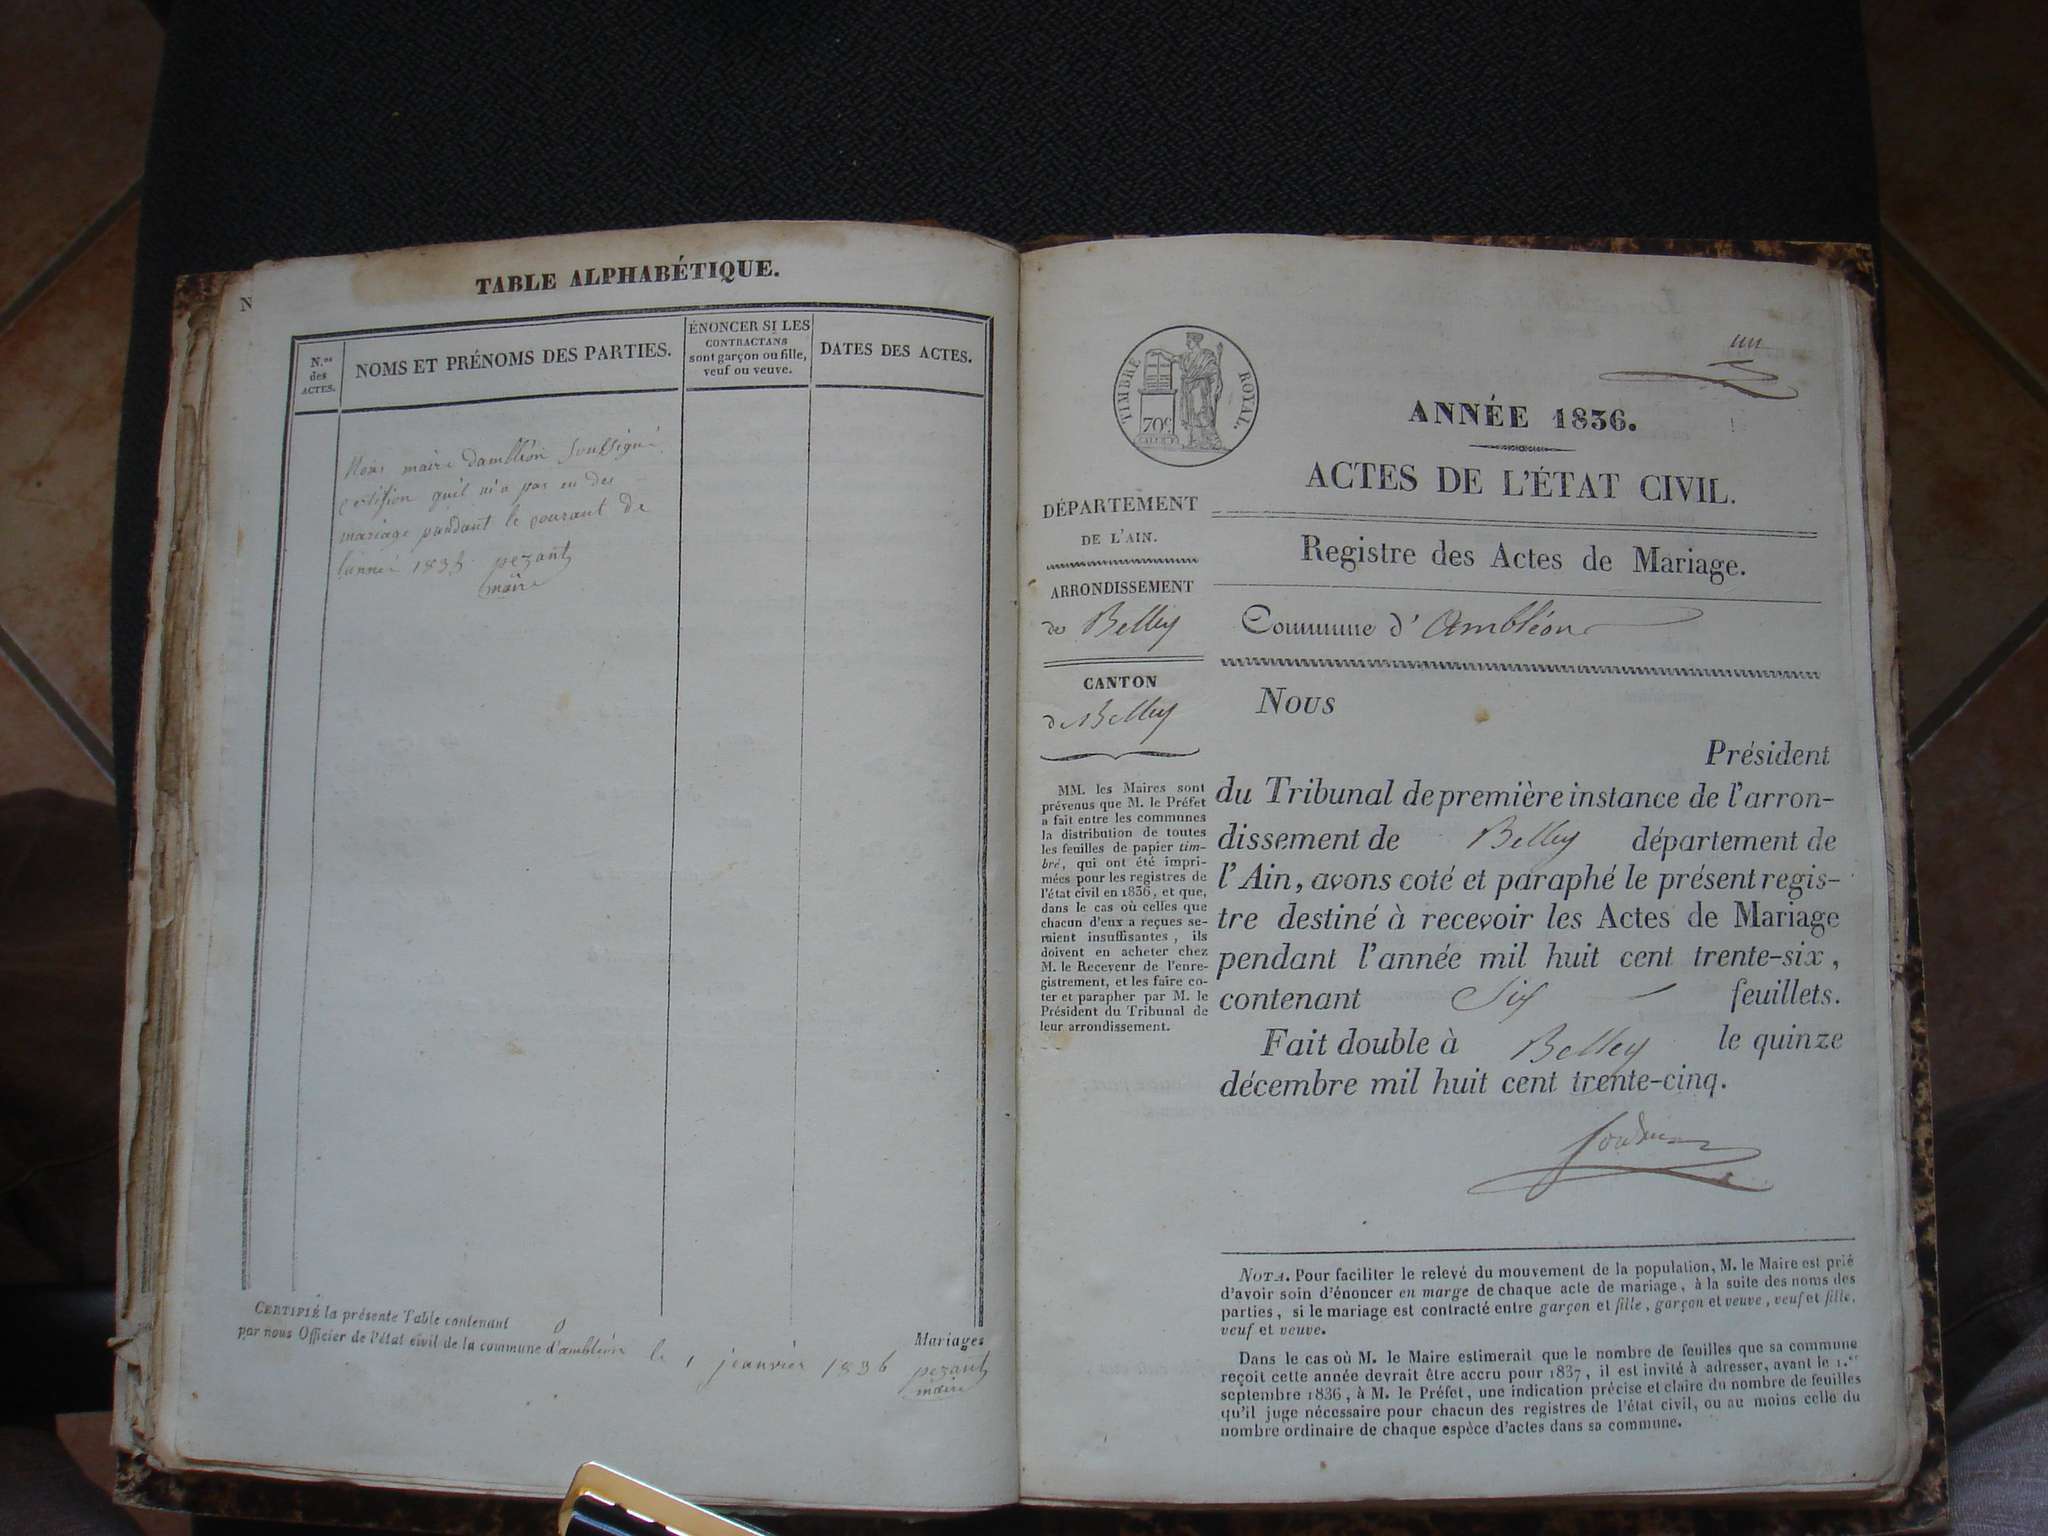 TABLE ALPHABÉTIQUE.
N
N.os
des
ACTES.
NOMS ET PRÉNOMS DES PARTIES.
ÉNONCER SI LES
CONTRACTANS
sont garçon ou fille,
veuf ou veuve.
DATES DES ACTES.
Nous maire d'ambléon soussigné
certifion qu'il ni'a pas eu des
mariage pandant le courant de
l'année 1835 pezant
maire
CERTIFIÉ la présente Table contenant 0 Mariages
par nous Officier de l'état civil de la commune d'ambléon le 1 jeanvier 1836 pezant
maire
un
TIMBRE ROYAL.
70c
ANNÉE 1836.
ACTES DE L'ÉTAT CIVIL.
Registre des Actes de Mariage.
Commune d'Ambléon
DÉPARTEMENT
DE L'AIN.
ARRONDISSEMENT
de Belley
CANTON
de Belley
MM. les Maires sont
prévenus que M. le Préfet
a fait entre les communes
la distribution de toutes
les feuilles de papier tim-
bré, qui ont été impri-
mées pour les registres de
l'état civil en 1836, et que,
dans le cas où celles que
chacun d'eux a reçues se-
raient insuffisantes, ils
doivent en acheter chez
M. le Receveur de l'enre-
gistrement, et les faire co-
ter et parapher par M. le
Président du Tribunal de
leur arrondissement.
Nous
Président
du Tribunal de première instance de l'arron-
dissement de Belley département de
l'Ain, avons coté et paraphé le présent regis-
tre destiné à recevoir les Actes de Mariage
pendant l'année mil huit cent trente-six,
contenant Six feuillets.
Fait double à Belley le quinze
décembre mil huit cent trente-cinq.
NOTA. Pour faciliter le relevé du mouvement de la population, M. le Maire est prié
d'avoir soin d'énoncer en marge de chaque acte de mariage, à la suite des noms des
parties, si le mariage est contracté entre garçon et fille, garçon et veuve, veuf et fille,
veuf et veuve.
Dans le cas où M. le Maire estimerait que le nombre de feuilles que sa commune
reçoit cette année devrait être accru pour 1837, il est invité à adresser, avant le 1.er
septembre 1836, à M. le Préfet, une indication précise et claire du nombre de feuilles
qu'il juge nécessaire pour chacun des registres de l'état civil, ou au moins celle du
nombre ordinaire de chaque espèce d'actes dans sa commune.